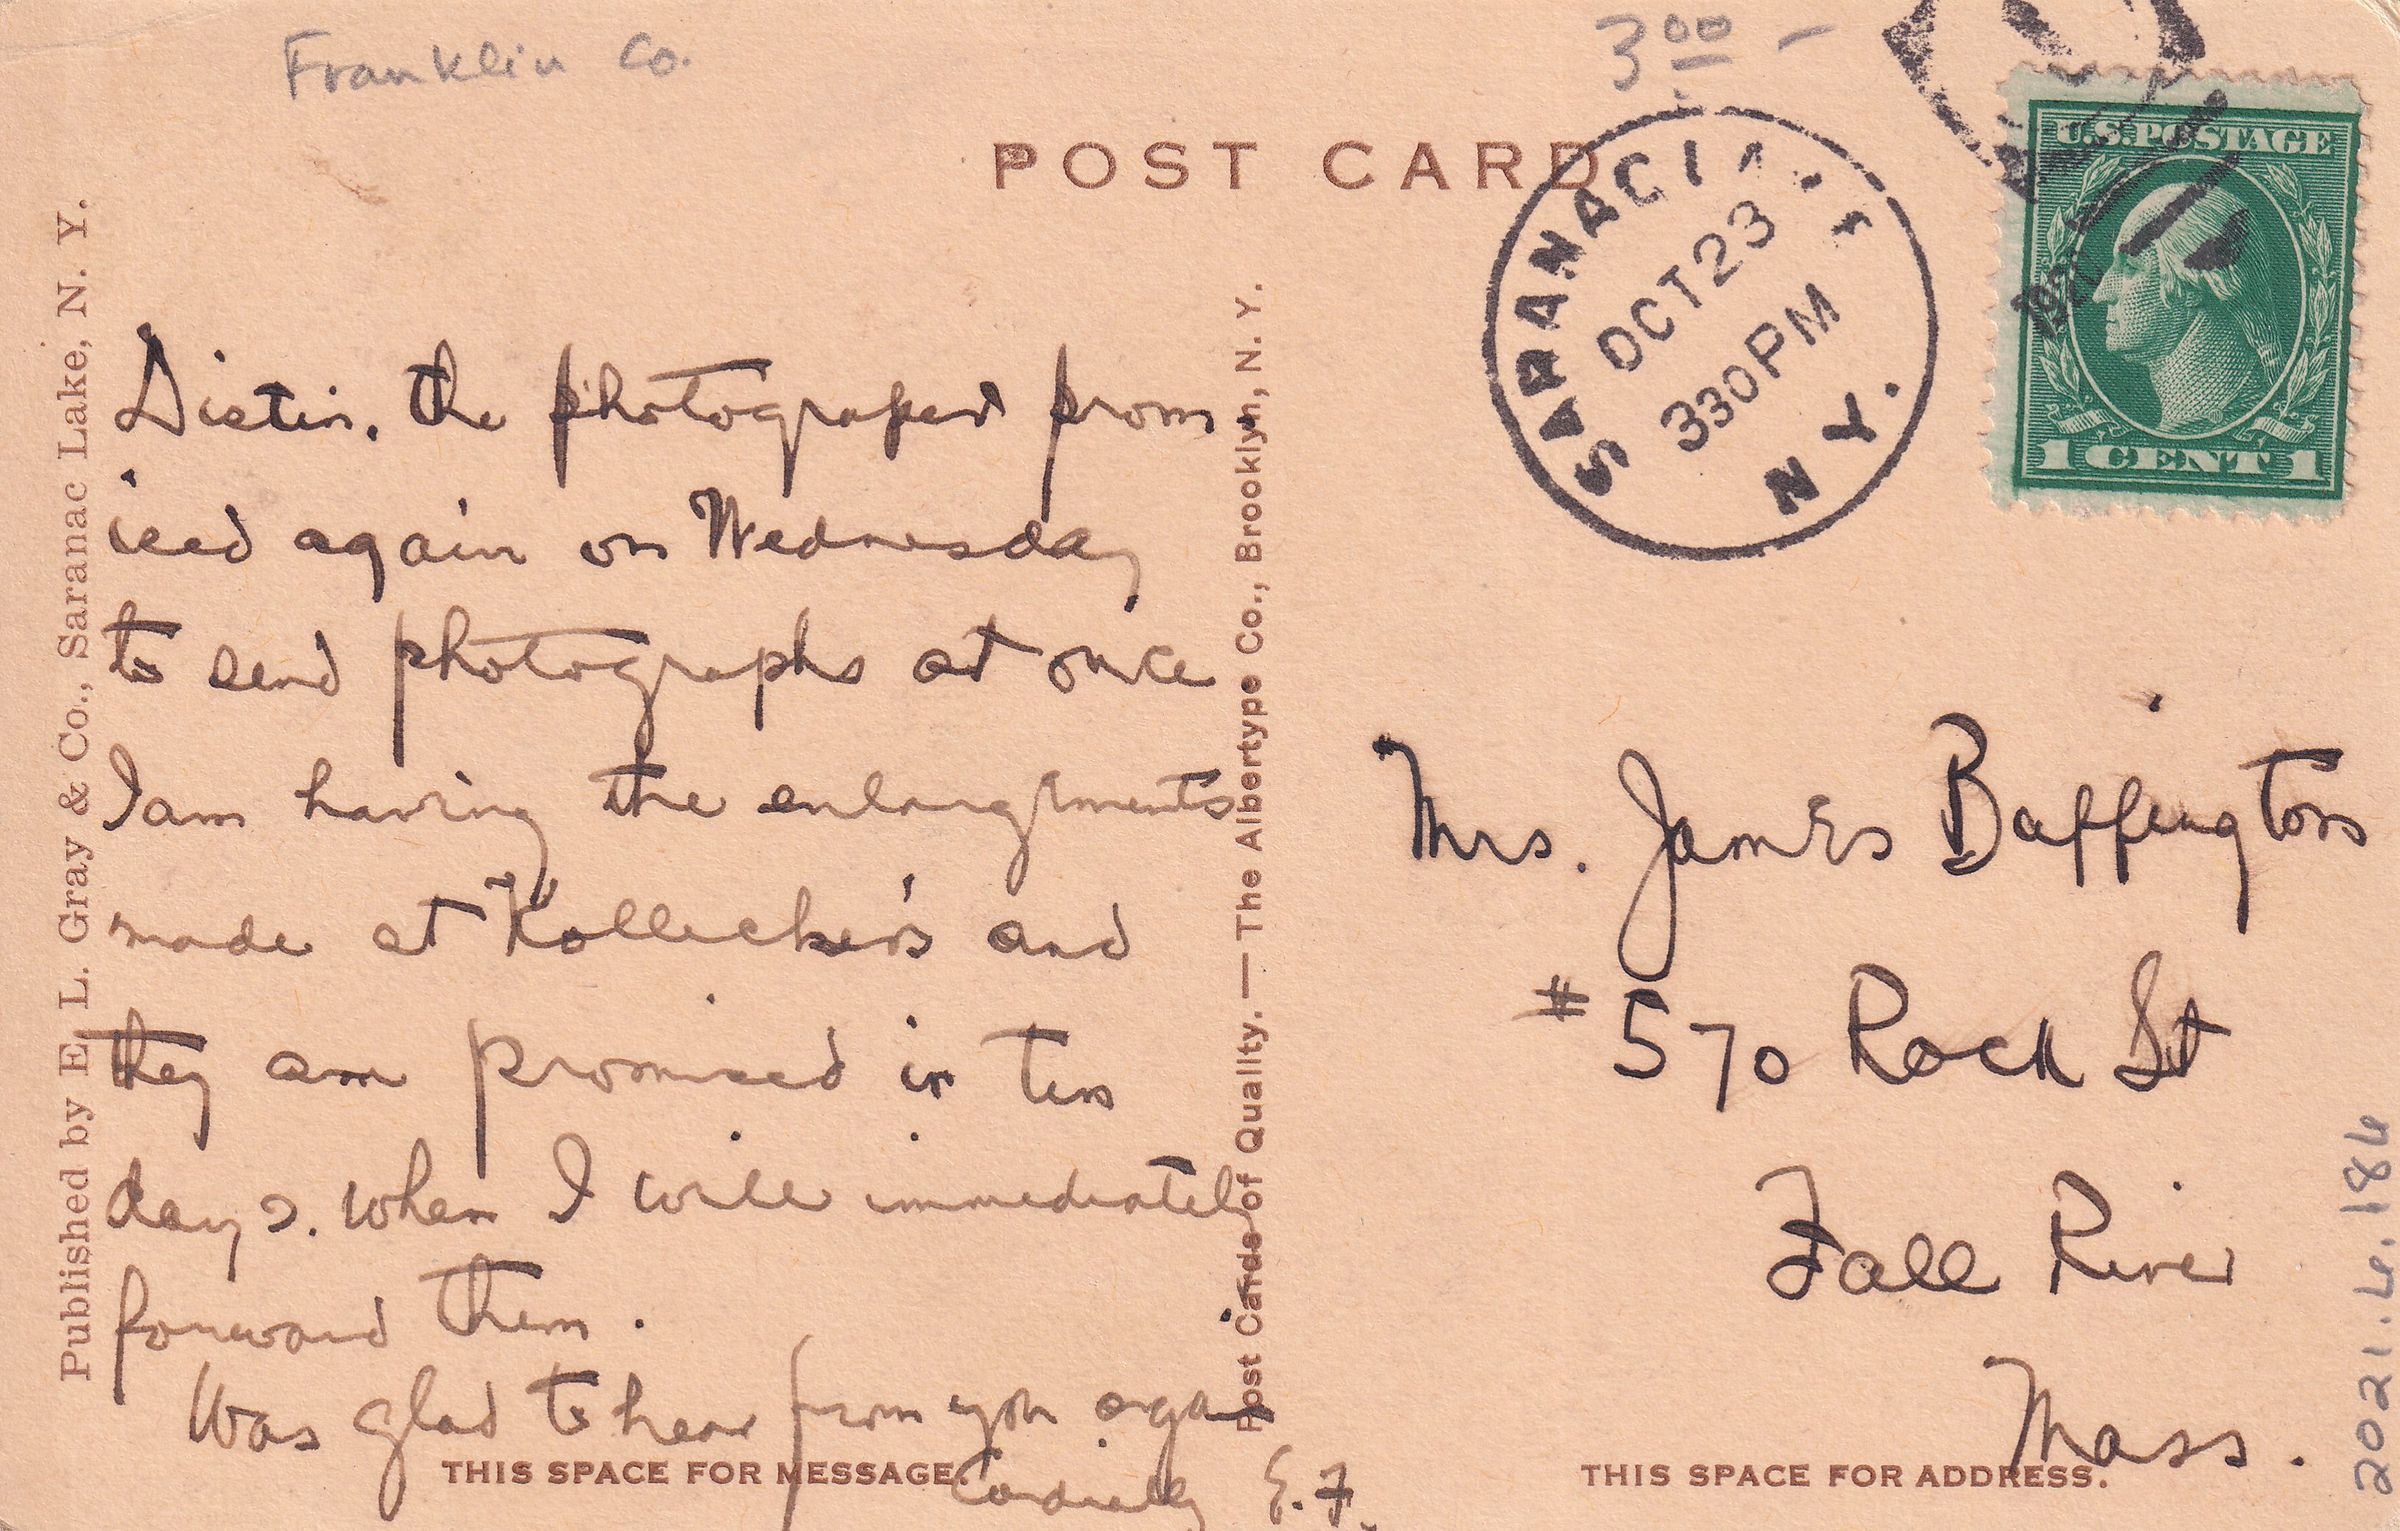 Franklin Co.
3 00 –
POST CARD
SARANAC LA
OCT 23
330 PM
N.Y.
U.S. POSTAGE
1 CENT 1
Distin, the photographer prom
ised again on Wednesday
to send photographs at once
I am having the enlargments
made at Kollecker's and
they are promised in ten
days. when I will immediately
forward them.
Was glad to hear from you again
Cordially E.F.
THIS SPACE FOR MESSAGE
Published by E. L. Gray & Co., Saranac Lake, N. Y.
Post Cards of Quality. — The Albertype Co., Brooklyn, N. Y.
Mrs. James Buffington
# 570 Rock St
Fall River
Mass.
THIS SPACE FOR ADDRESS.